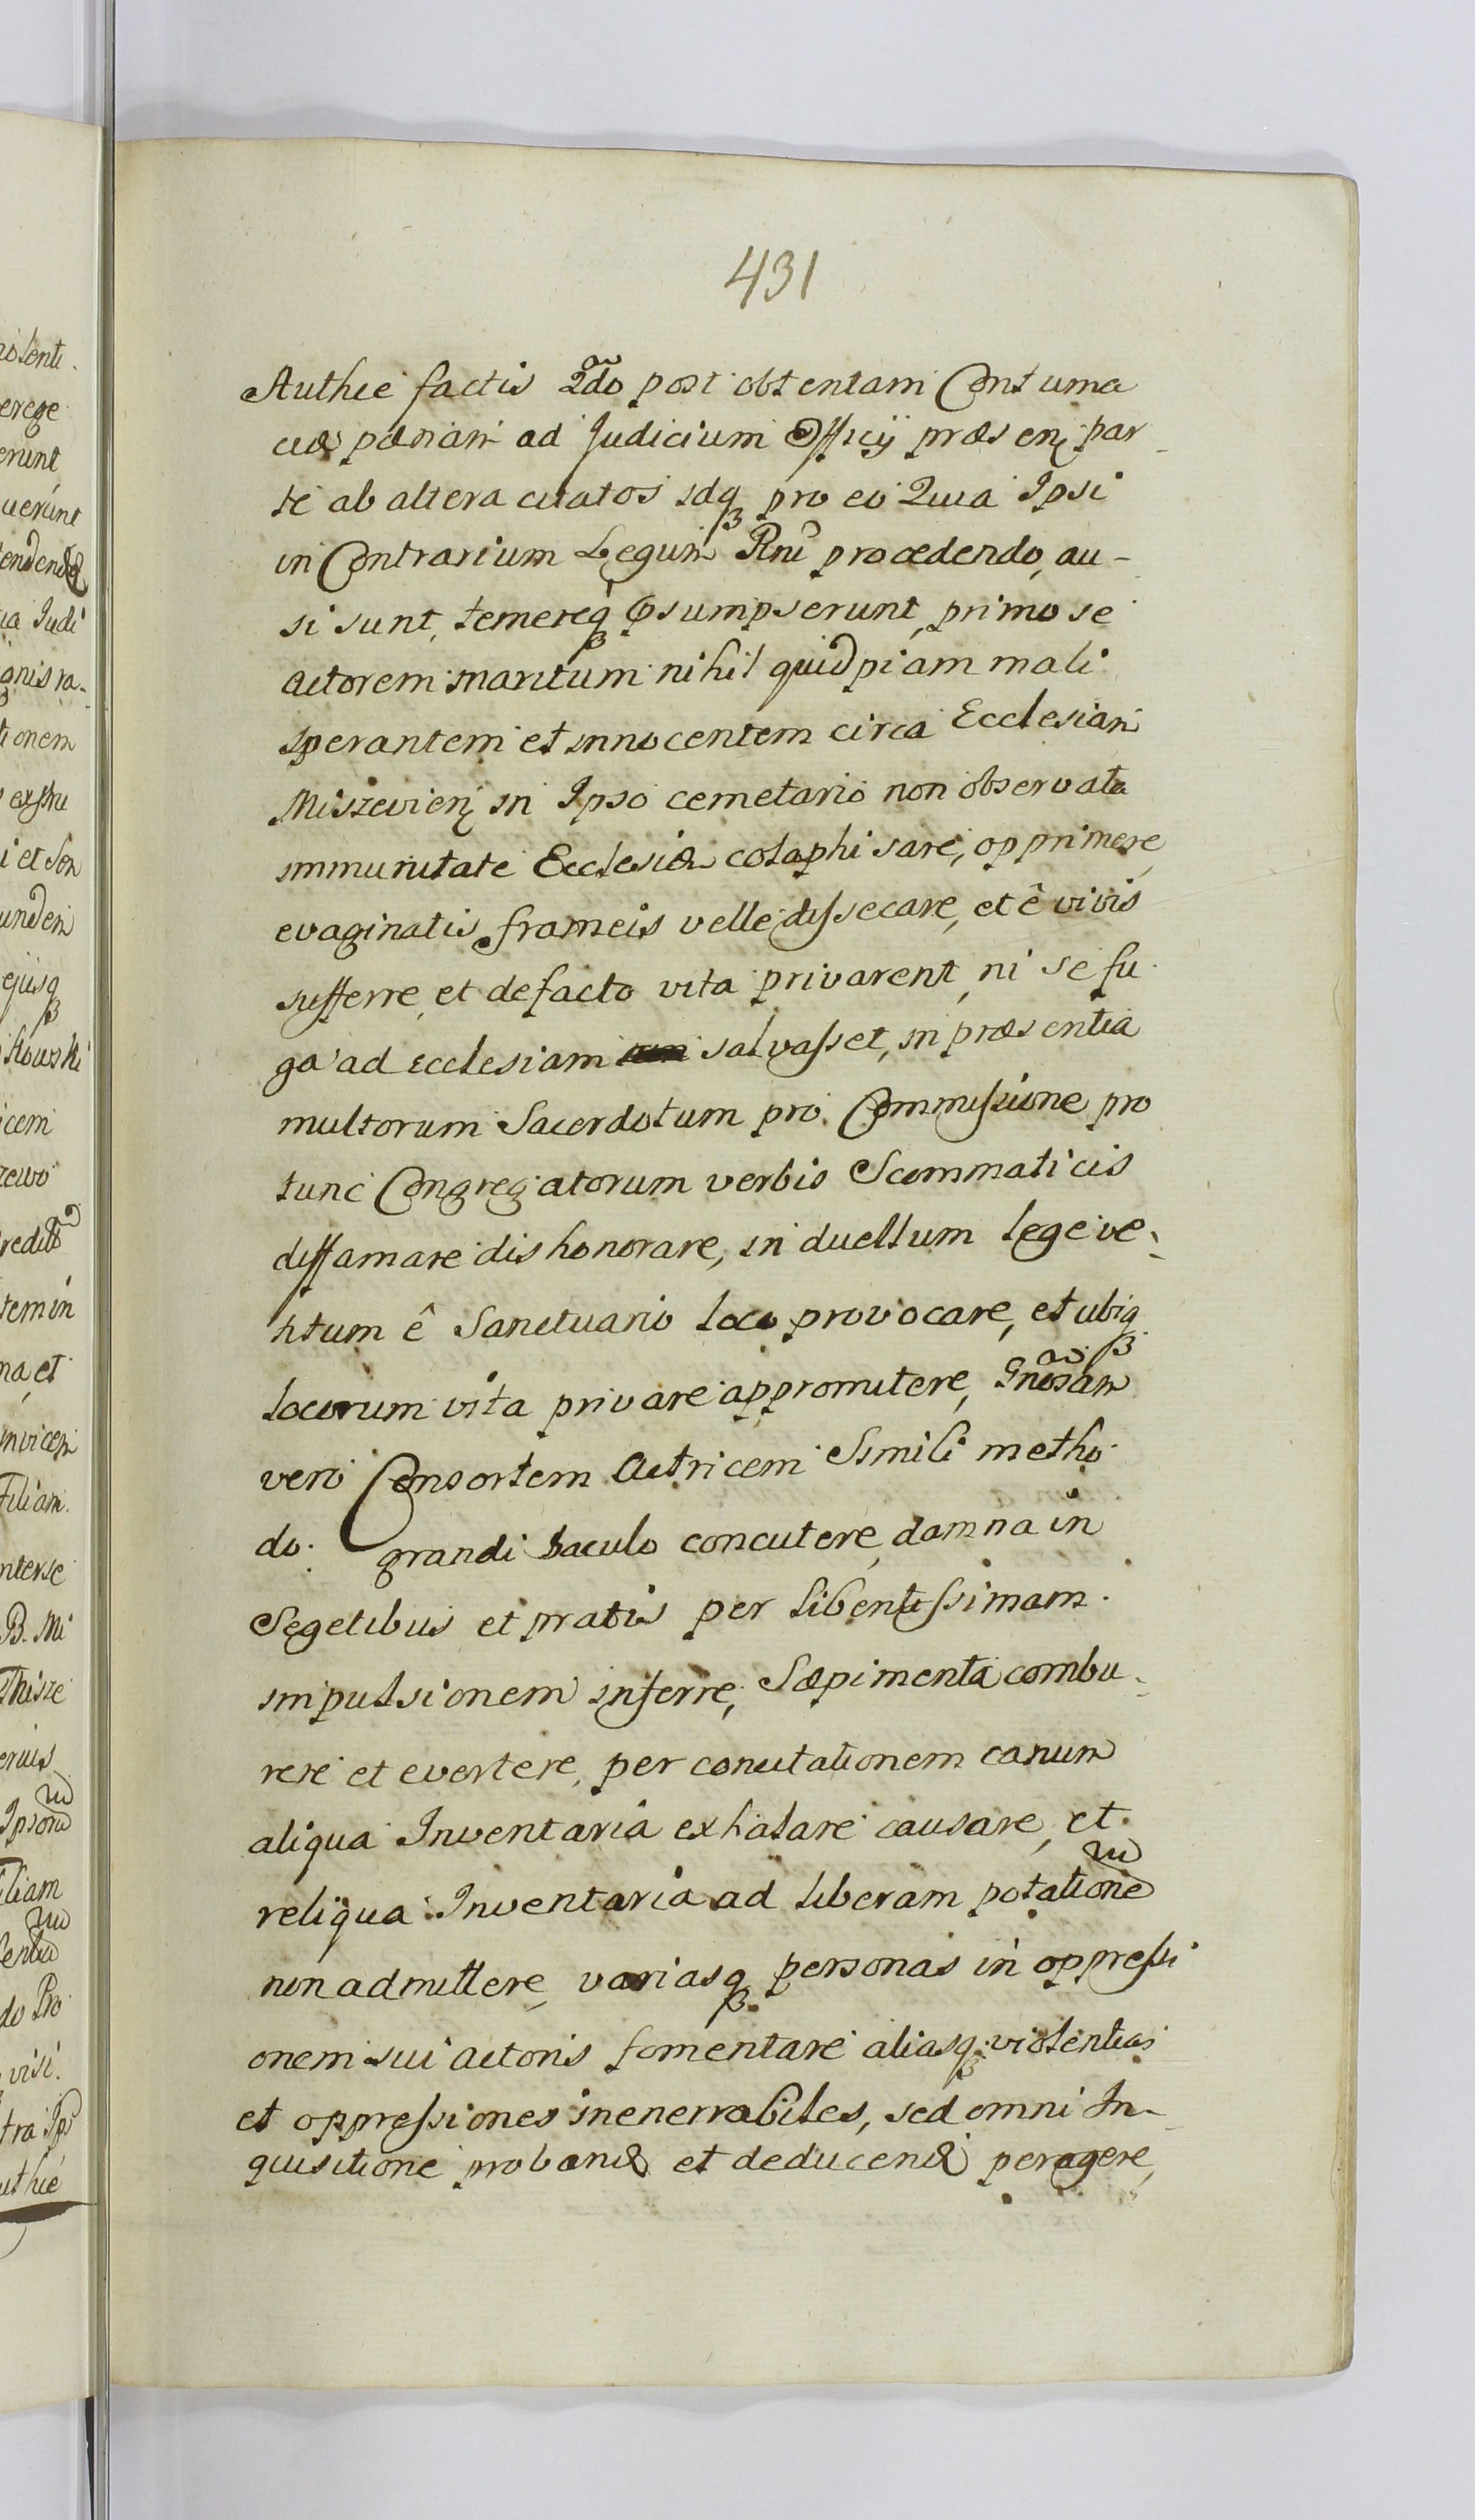 431
Authće factis 2do post obtentam Contuma
ciæ pænam ad Judicium Officij præsenţ par
te ab altera citatos idq₃ pro eo Quia Ipsi
in Contrarium Legum Rni procedendo, au-
si sunt, temereq₃ Psumpserunt, primo se
actorem maritum nihil quidpiam mali
sperantem et innocentem circa Ecclesiam
Miszevienţ in Ipso cemetario non observata
immunitate Ecclesiæ colaphisare, opprimere,
evaginatis frameis velle dissecare, et ê vivis
sufferre, et defacto vita privarent, ni se fu
ga ad Ecclesiam salvasset, in præsentia
multorum Sacerdotum pro Commissione pro
tunc Congregatorum verbis Scommaticis
diffamare dishonorare, in duellum lege ve-
titum ê Sanctuario loco provocare, et ubiq₃
locorum vita privare appromitere, Gnosam
vero Consortem Actricem Simili metho
do grandi baculo concutere, damna in
Segetibus et pratis per libentissimam
impulsionem inferre, Sæpimenta combu-
rere et evertere, per concitationem canum
aliqua Inventaria exhalare causare, et
reliqua Inventaria ad liberam potatione
non admittere, variasq₃ personas in oppressi
onem sui actoris fomentare aliasq₃ violentias
et oppressiones inenerrabiles, sed omni In-
quisitione proband et deducend peragere,